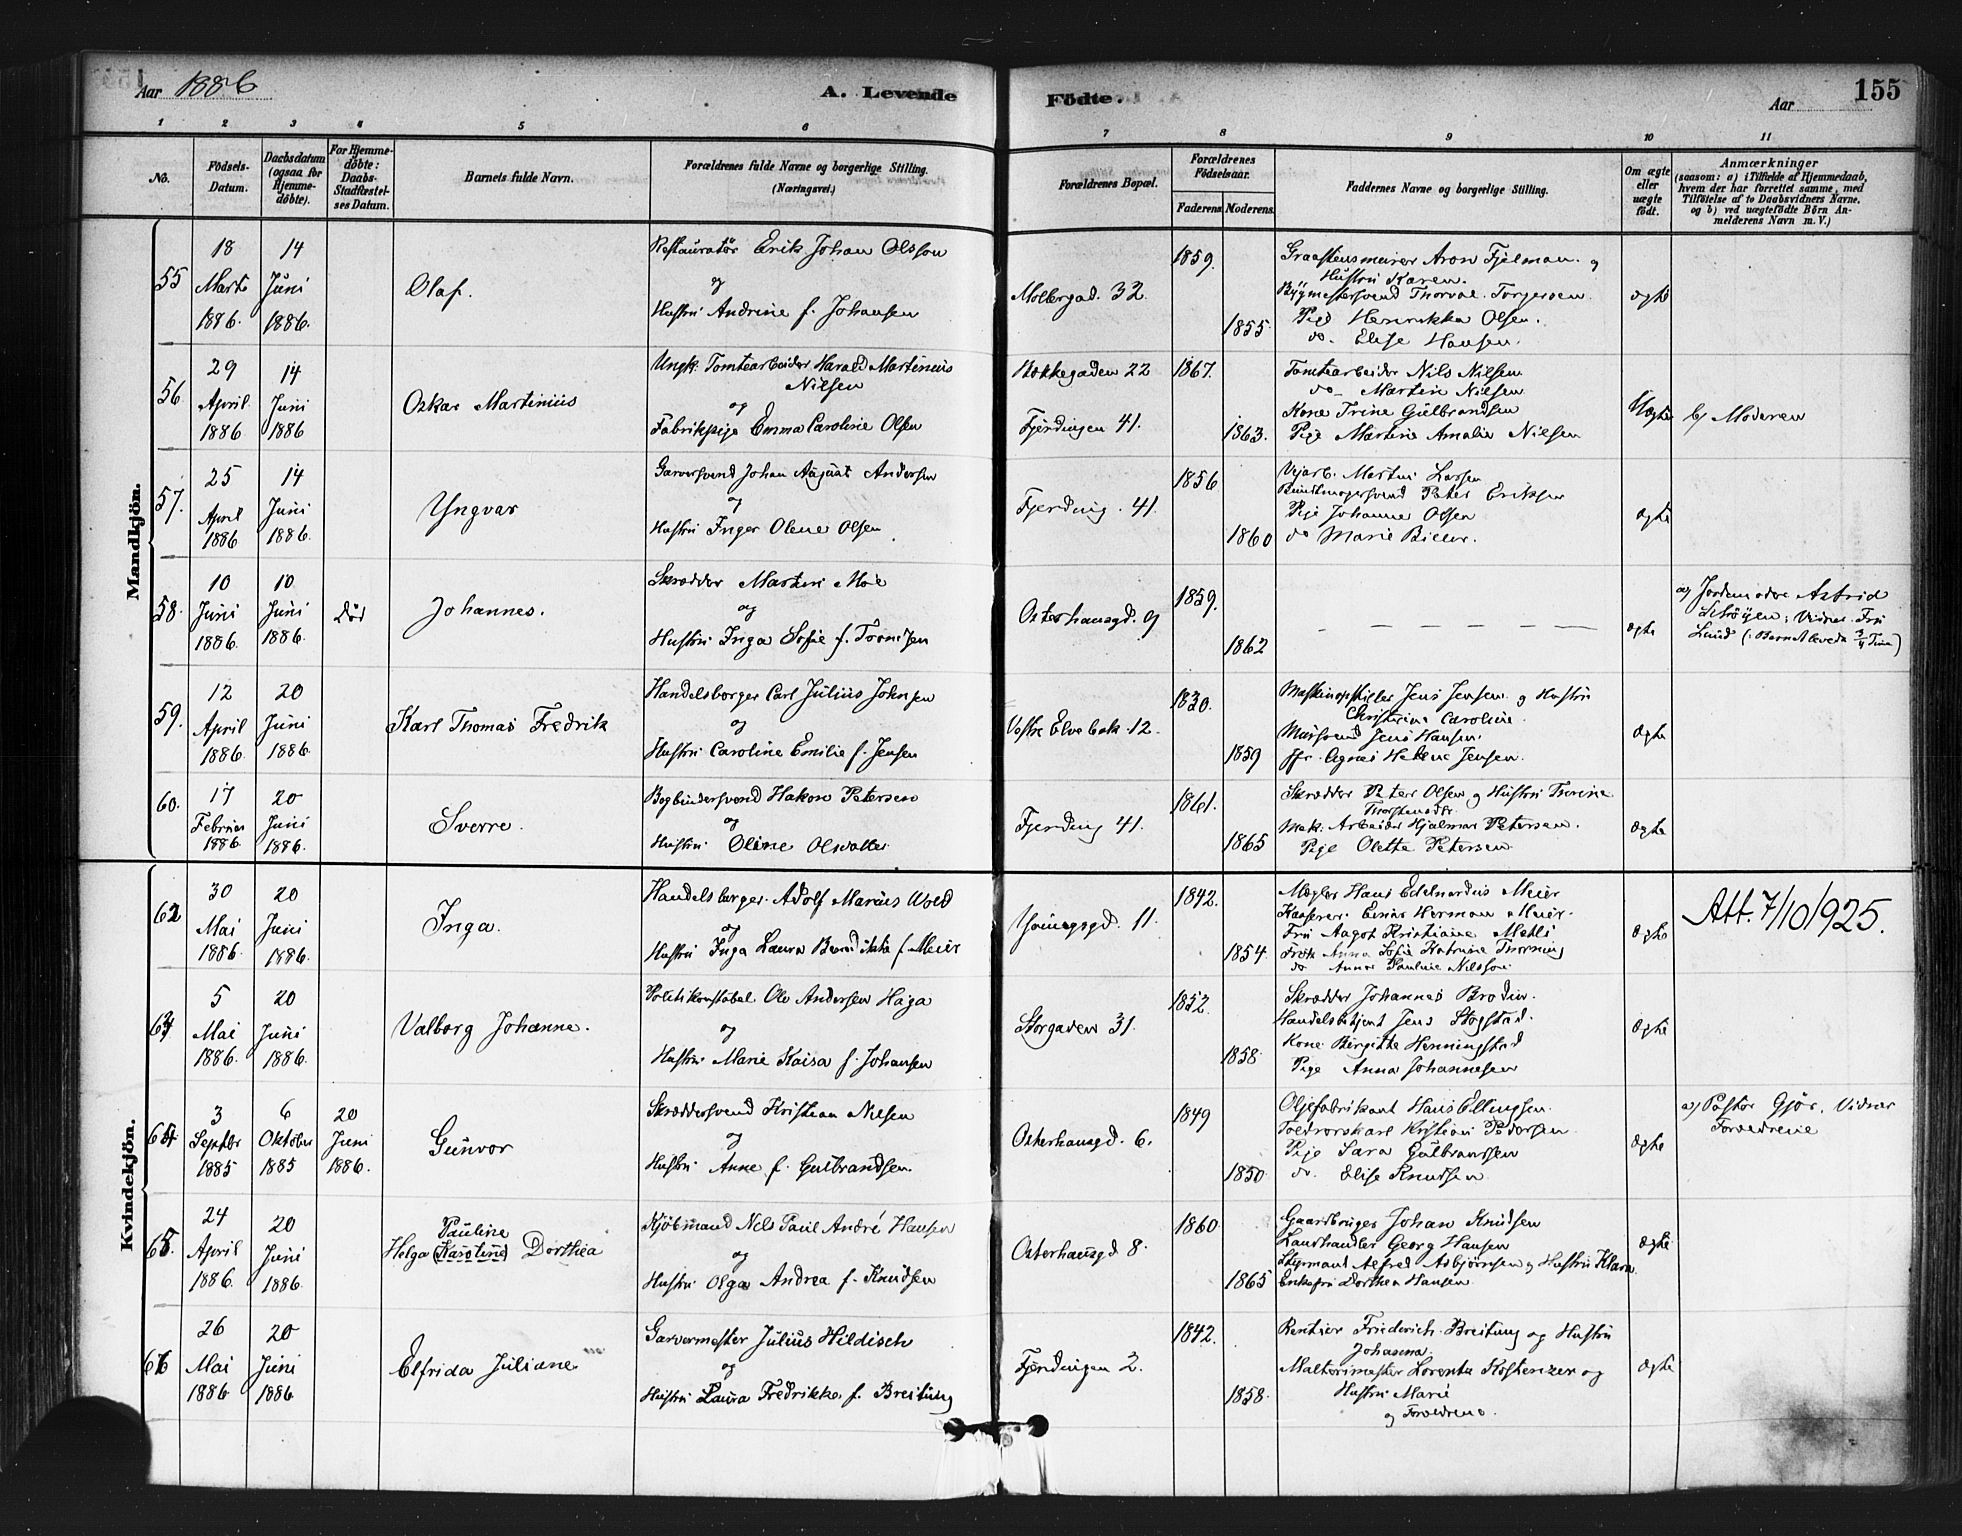 Aar 1886
A. Levende
Födte.
Aar
155
1 2 3 4 5 6 7 8 9 10 11
No.
Födsels-
Datum.
Daabsdatum
(ogsaa for
Hjemme-
döbte).
For Hjemme-
döbte:
Daabs-
Stadfæstel-
ses Datum.
Barnets fulde Navn.
Forældrenes fulde Navne og borgerlige Stilling.
(Næringsvei.)
Forældrenes Bopæl.
Forældrenes
Födselsaar.
Faderens
Moderens
Faddernes Navne og borgerlige Stilling.
Om ægte
eller
uægte
födt.
Anmærkninger
(saasom: a) i Tilfælde af Hjemmedaab,
hvem der har forrettet samme, med
Tilföielse af to Daabsvidners Navne,
og b) ved uægtefödte Börn An-
melderens Navn m. V.)
Mandkjön.
55
18
Marts
1886.
14
Juni
1886.
Olaf.
Restauratør Erik Johan Olsson
og
Hustru Andrine f. Johansen
Møllergad. 32.
1859.
1855.
Graastensmurer Aron Fjelman og
Hustru Karen.
Bygmestersvend Thorval Torgersen
Pige Henrikka Olsen.
do. Elise Hansen.
ægte
56.
29
April
1886
14
Juni
1886
Oskar Martinius
Ungk. Tomtearbeider Harald Martinius
Nilsen
og
Fabrikpige Emma Caroline Olsen
Bækkegaden 22
Fjerdingen 41.
1867.
1863.
Tomtearbeider Nils Nilsen
do Martin Nilsen
Kone Trine Gulbrandsen
Pige Martine Amalie Nilsen
Uægte
b) Moderen
57.
25
April
1886
14
Juni
1886.
Yngvar
Garversvend Johan August Andersen
og
Hustru Inger Olene Olsen
Fjerding. 41.
1856
1860
Vejarb. Martin Larsen
Bundtmagersvend Peter Eriksen
Pige Johanne Olsen
do Marie Biller.
ægte
58.
10
Juni
1886.
10
Juni
1886.
død
Johannes.
Skrædder Martin Moe
og
Hustru Inga Sofie f.
Osterhausgd. 9
1859.
1862
ægte
a) Jordemoder Astrid
Vidner Fru
Lund (Barnet levede 3/4 Time)
59.
12
April
1886
20
Juni
1886.
Karl Thomas Fredrik
Handelsborger Carl Julius Johnsen
og
Hustru Caroline Emilie f. Jensen
Vestre Elvebak. 12.
1830.
1859
Maskinopstiller Jens Jensen og Hustru
Christine Caroline.
Mursvend Jens Hansen.
Jfr. Agnes Helene Jensen.
ægte
60.
17
Februar
1886.
20
Juni
1886.
Sverre.
Bogbindersvend Hakon Petersen
og
Hustru Oline
Fjerding 41.
1861.
1865
Skrædder Peter Olsen og Hustru Thorine
Mek. Arbeider Hjalmar Petersen.
Pige Olette Petersen
ægte
Kvindekjön.
62
30
Mai
1886.
20
Juni
1886.
Inga.
Handelsborger Adolf Marius Wold
og
Hustru Inga Laura Bendikte f. Meier
11.
1842.
1854.
Mægler Hans Edelhardus Meier
Kasserer Einar Herman Meier.
Fru Aagot Kristiane
Frøk Anna Sofie Katrine Thorning
do Anna Pauline Nilsson
ægte
Att. 7/10/925.
63
5
Mai
1886.
20
Juni
1886.
Valborg Johanne.
Politikonstabel Ole Andersen Haga
og
Hustru Marie Kaisa f. Johansen
Storgaden 31.
1852.
1858.
Skrædder Johannes Brodin.
Handelsbetjent Jens Stogstad.
Kone Birgitte Henningstad
Pige Anna Johannesen
ægte
64
3
Septbr
1885
6
Oktober
1885
20
Juni
1886.
Gunvor
Skræddersvend Kristian Nilsen
og
Hustru Anne f. Gulbrandsen
Osterhausgd. 6.
1849
1850
Oljefabrikant Hans Ellingsen.
Kristian Pedersen
Pige Sara Gulbrandsen
do. Elise Knudsen
ægte
a) Pastor Gjør. Vidner
Forældrene
65.
24
April
1886.
20
Juni
1886.
Pauline
Helga (Karoline) Dorthea
Kjøbmand Nels Paul André Hansen
og
Hustru Olga Andrea f. Knudsen
Osterhausgd 8.
1860
1865
Gaardbruger Johan Knudsen
Landhandler Georg Hansen
Styrmand Alfred Asbjørnsen og Hustru Klara
Enkefru Dorthea Hansen
ægte
66
26
Mai
1886
20
Juni
1886
Elfrida Juliane
Garvermester Julius Hildisch
og
Hustru Laura Fredrikke f. Breitung
Fjerdingen 2.
1842.
1858.
Rentier Friederich Breitung og Hustru
Johanna.
Maltermester Lorentz Kostenzer og
Hustru Marie
og Forældrene.
ægte